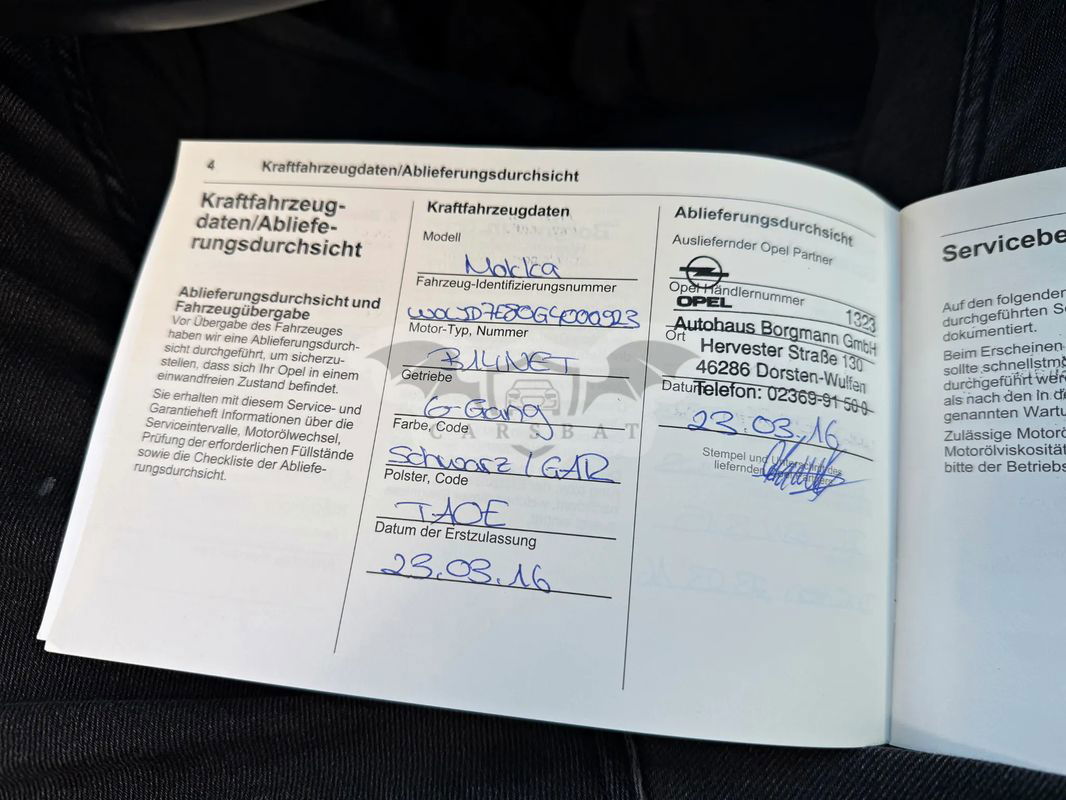 4 Kraftfahrzeugdaten/Ablieferungsdurchsicht
Kraftfahrzeug-
daten/Abliefe-
rungsdurchsicht
Ablieferungsdurchsicht und
Fahrzeugübergabe
Vor Übergabe des Fahrzeuges
haben wir eine Ablieferungsdurch-
sicht durchgeführt, um sicherzu-
stellen, dass sich Ihr Opel in einem
einwandfreien Zustand befindet.
Sie erhalten mit diesem Service- und
Garantieheft Informationen über die
Serviceintervalle, Motorölwechsel,
Prüfung der erforderlichen Füllstände
sowie die Checkliste der Abliefe-
rungsdurchsicht.
Kraftfahrzeugdaten
Modell
Mokka
Fahrzeug-Identifizierungsnummer
W0LJD7E80G4000923
Motor-Typ, Nummer
B14NET
Getriebe
6-Gang
Farbe, Code
Schwarz / GAR
Polster, Code
TAOE
Datum der Erstzulassung
23.03.16
Ablieferungsdurchsicht
Ausliefernder Opel Partner
Opel Händlernummer
OPEL
1323
Autohaus Borgmann GmbH
Ort
Hervester Straße 130
46286 Dorsten-Wulfen
Datum
Telefon: 02369-91 50 0
23.03.16
Stempel und Unterschrift des
liefernden
CARSBAT
Servicebe
Auf den folgenden
durchgeführten Se
dokumentiert.
Beim Erscheinen
sollte schnellstmö
durchgeführt werd
als nach den In de
genannten Wartu
Zulässige Motorö
Motorölviskosität
bitte der Betriebs